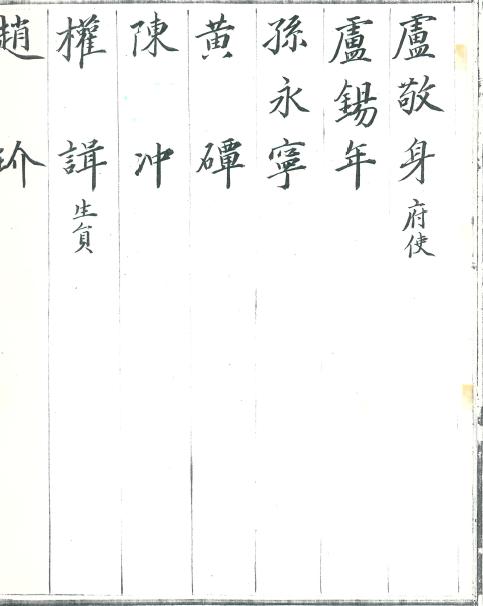 盧敬身 府使
盧錫年
孫永寧
黄磹
陳冲
權諿 生負
趙玠